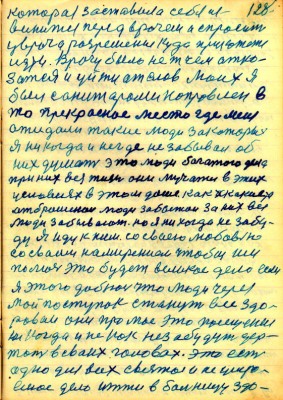 128
которая заставила себя из-
винитьсч перед врачем и спросить
у врача разрешения куда притти
изу. Врачу было не чем отка-
затся и уйти от слов Моих я
был санитарами направлен в
то прекрасное место где меня
ожидали такие люди за которых
я никогда и негде не забывал об
них думать это люди богатого
при них вся они мучатся в этих
условиях в этом доме. Как и какие
отброшеном люди забытом за них все
люди забывают. но я никогда не забу-
ду я иду к ним. со своею любовью
со своими намерением чтобы им
помоч это будет великое дело если
я этого добьюсь что люди через
мой поступок станут все здо-
ровыми они про мое это
ни когда и не как не забудут дер-
жать в своих головах. это есть
одно для всех святое и не
дело итти в больницу здо-